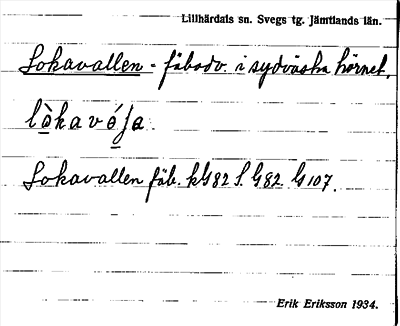 Lillhärdals sn. Svegs tg. Jämtlands län.
Lokavallen - fäbodv. i sydvästra hörnet.
lòkavója.
Lokavallen fäb. kG82 S. G82. G107.
Erik Eriksson 1934.